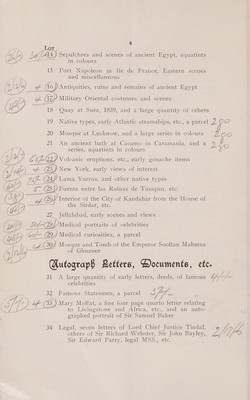 4
Lot
14 Sepulchres and scenes of ancient Egypt, aquatints
in colours
15 Port Napoleon in Ile de France, Eastern scenes
and miscellaneous
16 Antiquities, ruins and remains of ancient Egypt
17 Military Oriental costumes and scenes
18 Quay at Suez, 1839, and a large quantity of others
19 Native types, early Atlantic steamships, etc., a parcel
20 Mosque at Lucknow, and a large series in colours
21 An ancient bath at Cacamo in Caramania, and a
series, aquatints in colours
22 Volcanic eruptions, etc., early gouache items
23 New York, early views of interest
24 Lama Yurras, and other native types
25 Fuente entre las Ruinas de Tusapan, etc.
26 Interior of the City of Kandahar from the House of
the Sirdar, etc.
27 Jellalabad, early scenes and views
28 Medical portraits of celebrities
29 Medical curiosities, a parcel
30 Mosque and Tomb of the Emperor Sooltan Mahmus
of Ghuznee
Autograph Letters, Documents, etc.
31 A large quantity of early letters, deeds, of famous
celebrities
32 Famous Statesmen, a parcel
33 Mary Moffat, a fine four page quarto letter relating
to Livingstone and Africa, etc., and an auto-
graphed portrait of Sir Samuel Baker
34 Legal, seven letters of Lord Chief Justice Tindal,
others of Sir Richard Webster, Sir John Bayley,
Sir Edward Parry, legal MSS., etc.